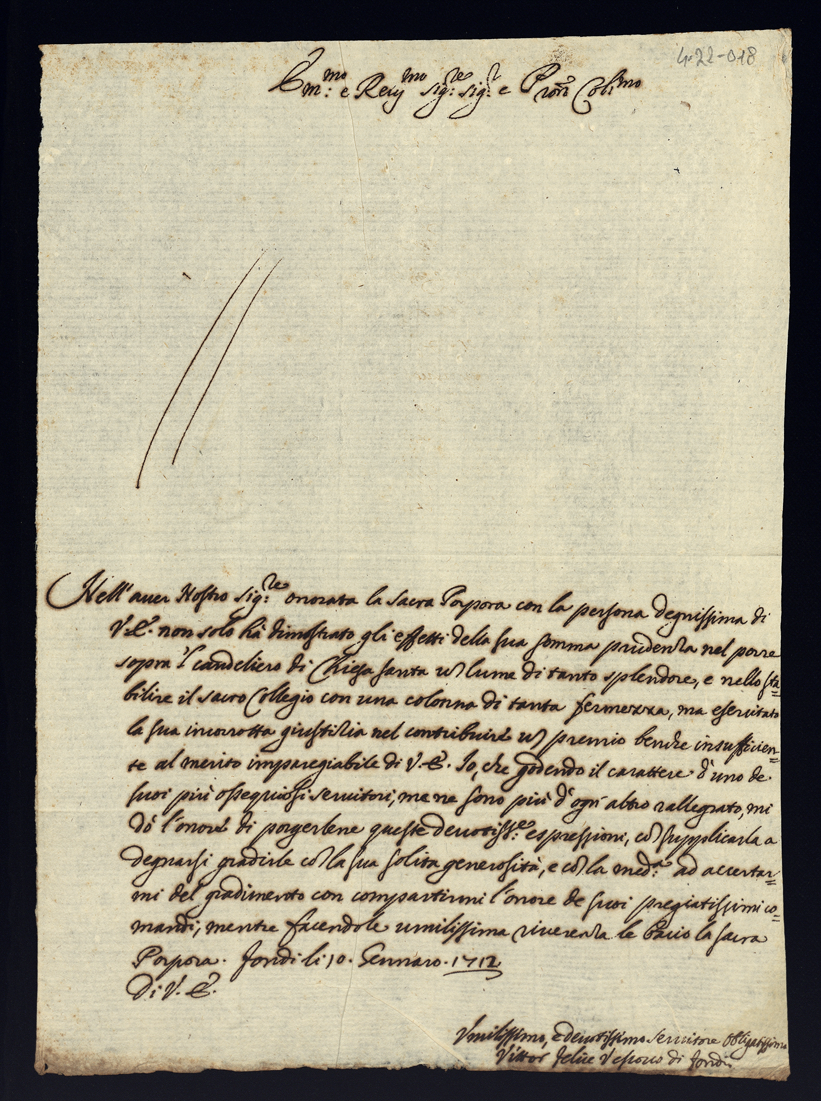 4-22-018
Em.mo: e Reu.mo Sig:re Sig:r e Pron Col.mo
Nell'auer Nostro Sig:re onorata la Sacra Porpora con la persona degnissima di
V. E. non solo hà dimostrato gli effetti della sua somma prudenza nel porre
sopra 'l candeliero di Chiesa santa un lume di tanto splendore, e nello sta=
bilire il sacro Collegio con una colonna di tanta fermezza, ma esercitato
la sua incorrotta giustizia nel contribuire un premio benche insufficien=
te al merito impareggiabile di V. E. Io, che godendo il carattere d'uno de
suoi più ossequiosi seruitori, me ne sono più d'ogn'altro rallegrato, mi
dò l'onore di porgerlene queste deuotiss:e espressioni, con supplicarla a
degnarsi gradirle con la sua solita generosità, e con la med:a ad accertar=
mi del gradimento con compartirmi l'onore de suoi pregiatissimi co=
mandi, mentre facendole umilissima riuerenza le Bacio la sacra
Porpora. Fondi li 10. Gennaro. 1712
Di V. E.
Vmilissimo, e deuotissimo seruitore obligatissimo
Vittor Felice Vescouo di Fondi